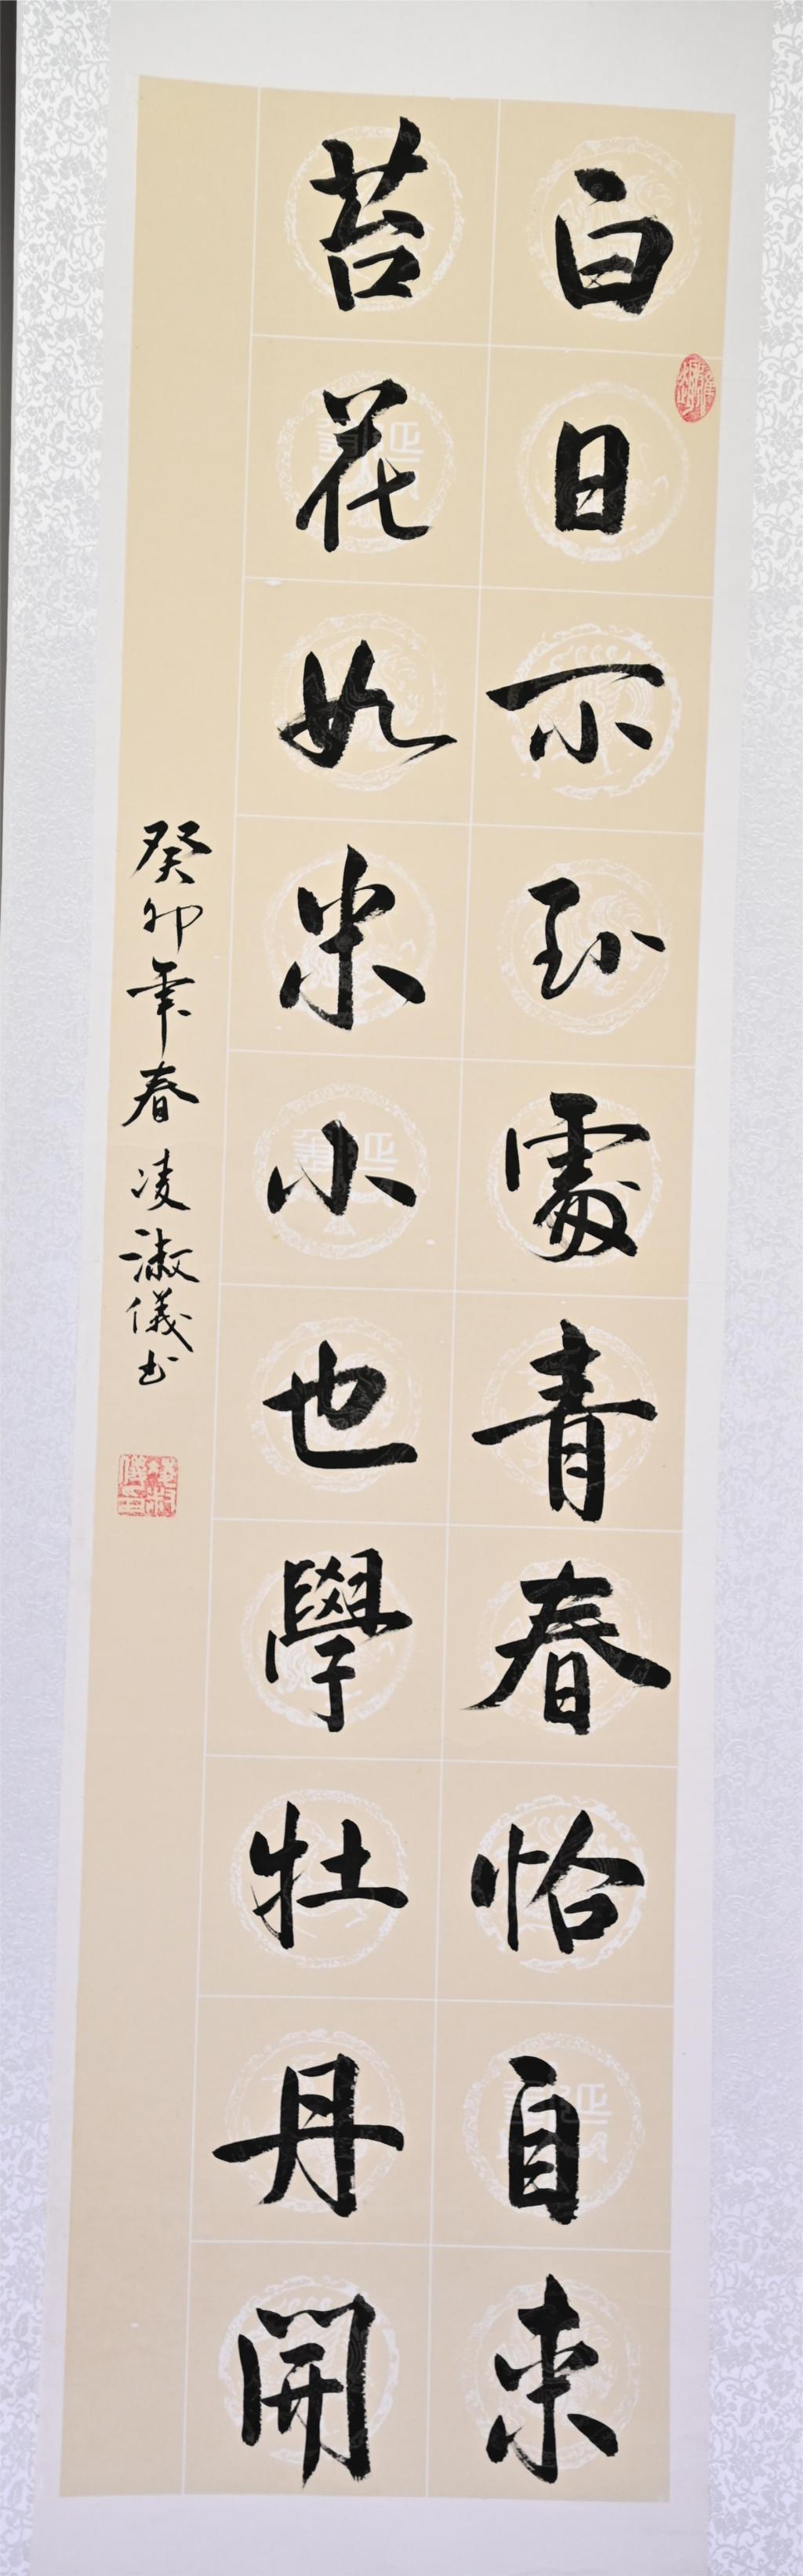 白日不到處青春恰自來
苔花如米小也學牡丹開
癸卯年春凌淑儀书